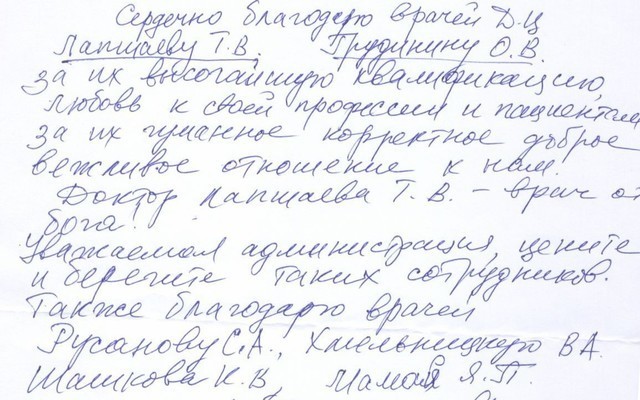 Сердечно благодарю врачей Д.Ц
Лапшаеву Т.В. Грудинину О.В.
за их высочайшую квалификацию,
любовь к своей профессии и пациентам
за их гуманное корректное доброе
вежливое отношение к нам.
Доктор Лапшаева Т.В. – врач от
бога!
Уважаемая администрация, цените
и берегите таких сотрудников.
Также благодарю врачей
Русанову С.А., Хмельницкую В.А.
Шашкова К.В, Мамай Я.П.